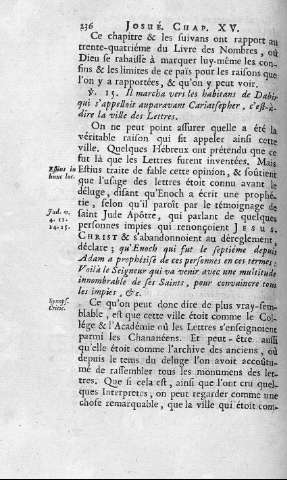 236 JOSUÉ. CHAP. XV.
Ce chapitre & les suivans ont rapport au
trente-quatriéme du Livre des Nombres, où
Dieu se rabaisse à marquer luy-même les con-
fins & les limites de ce païs pour les raisons que
l'on y a rapportées, & qu'on y peut voir.
℣. 15. Il marcha vers les habitans de Dabir
qui s'appelloit auparavant Cariatsepher, c'est-à-
dire la ville des Lettres.
On ne peut point assurer quelle a été la
véritable raison qui fit appeler ainsi cette
ville. Quelques Hébreux ont prétendu que ce
fut là que les Lettres furent inventées. Mais
Estius in
hunc loc.
Estius traite de fable cette opinion, & soûtient
que l'usage des lettres étoit connu avant le
déluge, disant qu'Enoch a écrit une prophé-
tie, selon qu'il paroît par le témoignage de
Jud. v.
4. 11.
14. 15.
saint Jude Apôtre, qui parlant de quelques
personnes impies qui renonçoient JESUS-
CHRIST & s'abandonnoient au déreglement,
déclare; qu'Enoch qui fut le septiéme depuis
Adam a prophétisé de ces personnes en ces termes:
Voilà le Seigneur qui va venir avec une multitude
innombrable de ses Saints, pour convaincre tous
les impies, &c.
Synops.
Critic.
Ce qu'on peut donc dire de plus vray-sem-
blable, est que cette ville étoit comme le Col-
lége & l'Académie où les Lettres s'enseignoient
parmi les Chananéens. Et peut-être aussi
qu'elle étoit comme l'archive des anciens, où
depuis le tems du déluge l'on avoit accoûtu-
mé de rassembler tous les monumens des let-
tres. Que si cela est, ainsi que l'ont cru quel-
ques Interpretes, on peut regarder comme une
chose remarquable, que la ville qui étoit com-